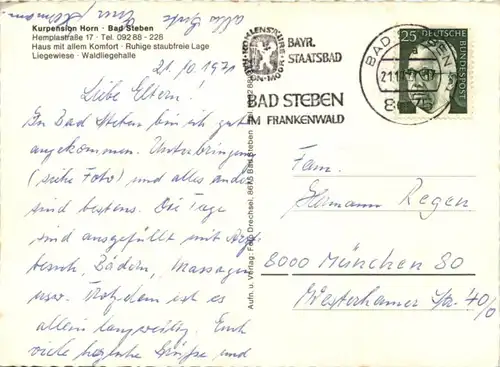 alles Gute
Euer Hermann
Kurpension Horn · Bad Steben
Hemplastraße 17 · Tel. 09288 - 228
Haus mit allem Komfort · Ruhige staubfreie Lage
Liegewiese · Waldliegehalle
21.10.1971
Liebe Eltern!
In Bad Steben bin ich gut
angekommen. Unterbringung
(siehe Foto) und alles andere
sind bestens. Die Tage
sind ausgefüllt mit Arzt-
besuch, Bädern, Massagen
usw. Trotzdem ist es
allein langweilig. Euch
viele herzliche Grüße und
Aufn. u. Verlag: Foto Drechsel, 8675 Bad Steben
BAYR.
STAATSBAD
BAD STEBEN
IM FRANKENWALD
BAD STEBEN
8675
25
DEUTSCHE
BUNDESPOST
Fam.
Hermann Regen
8000 München 80
Westerhamer Str. 40/0